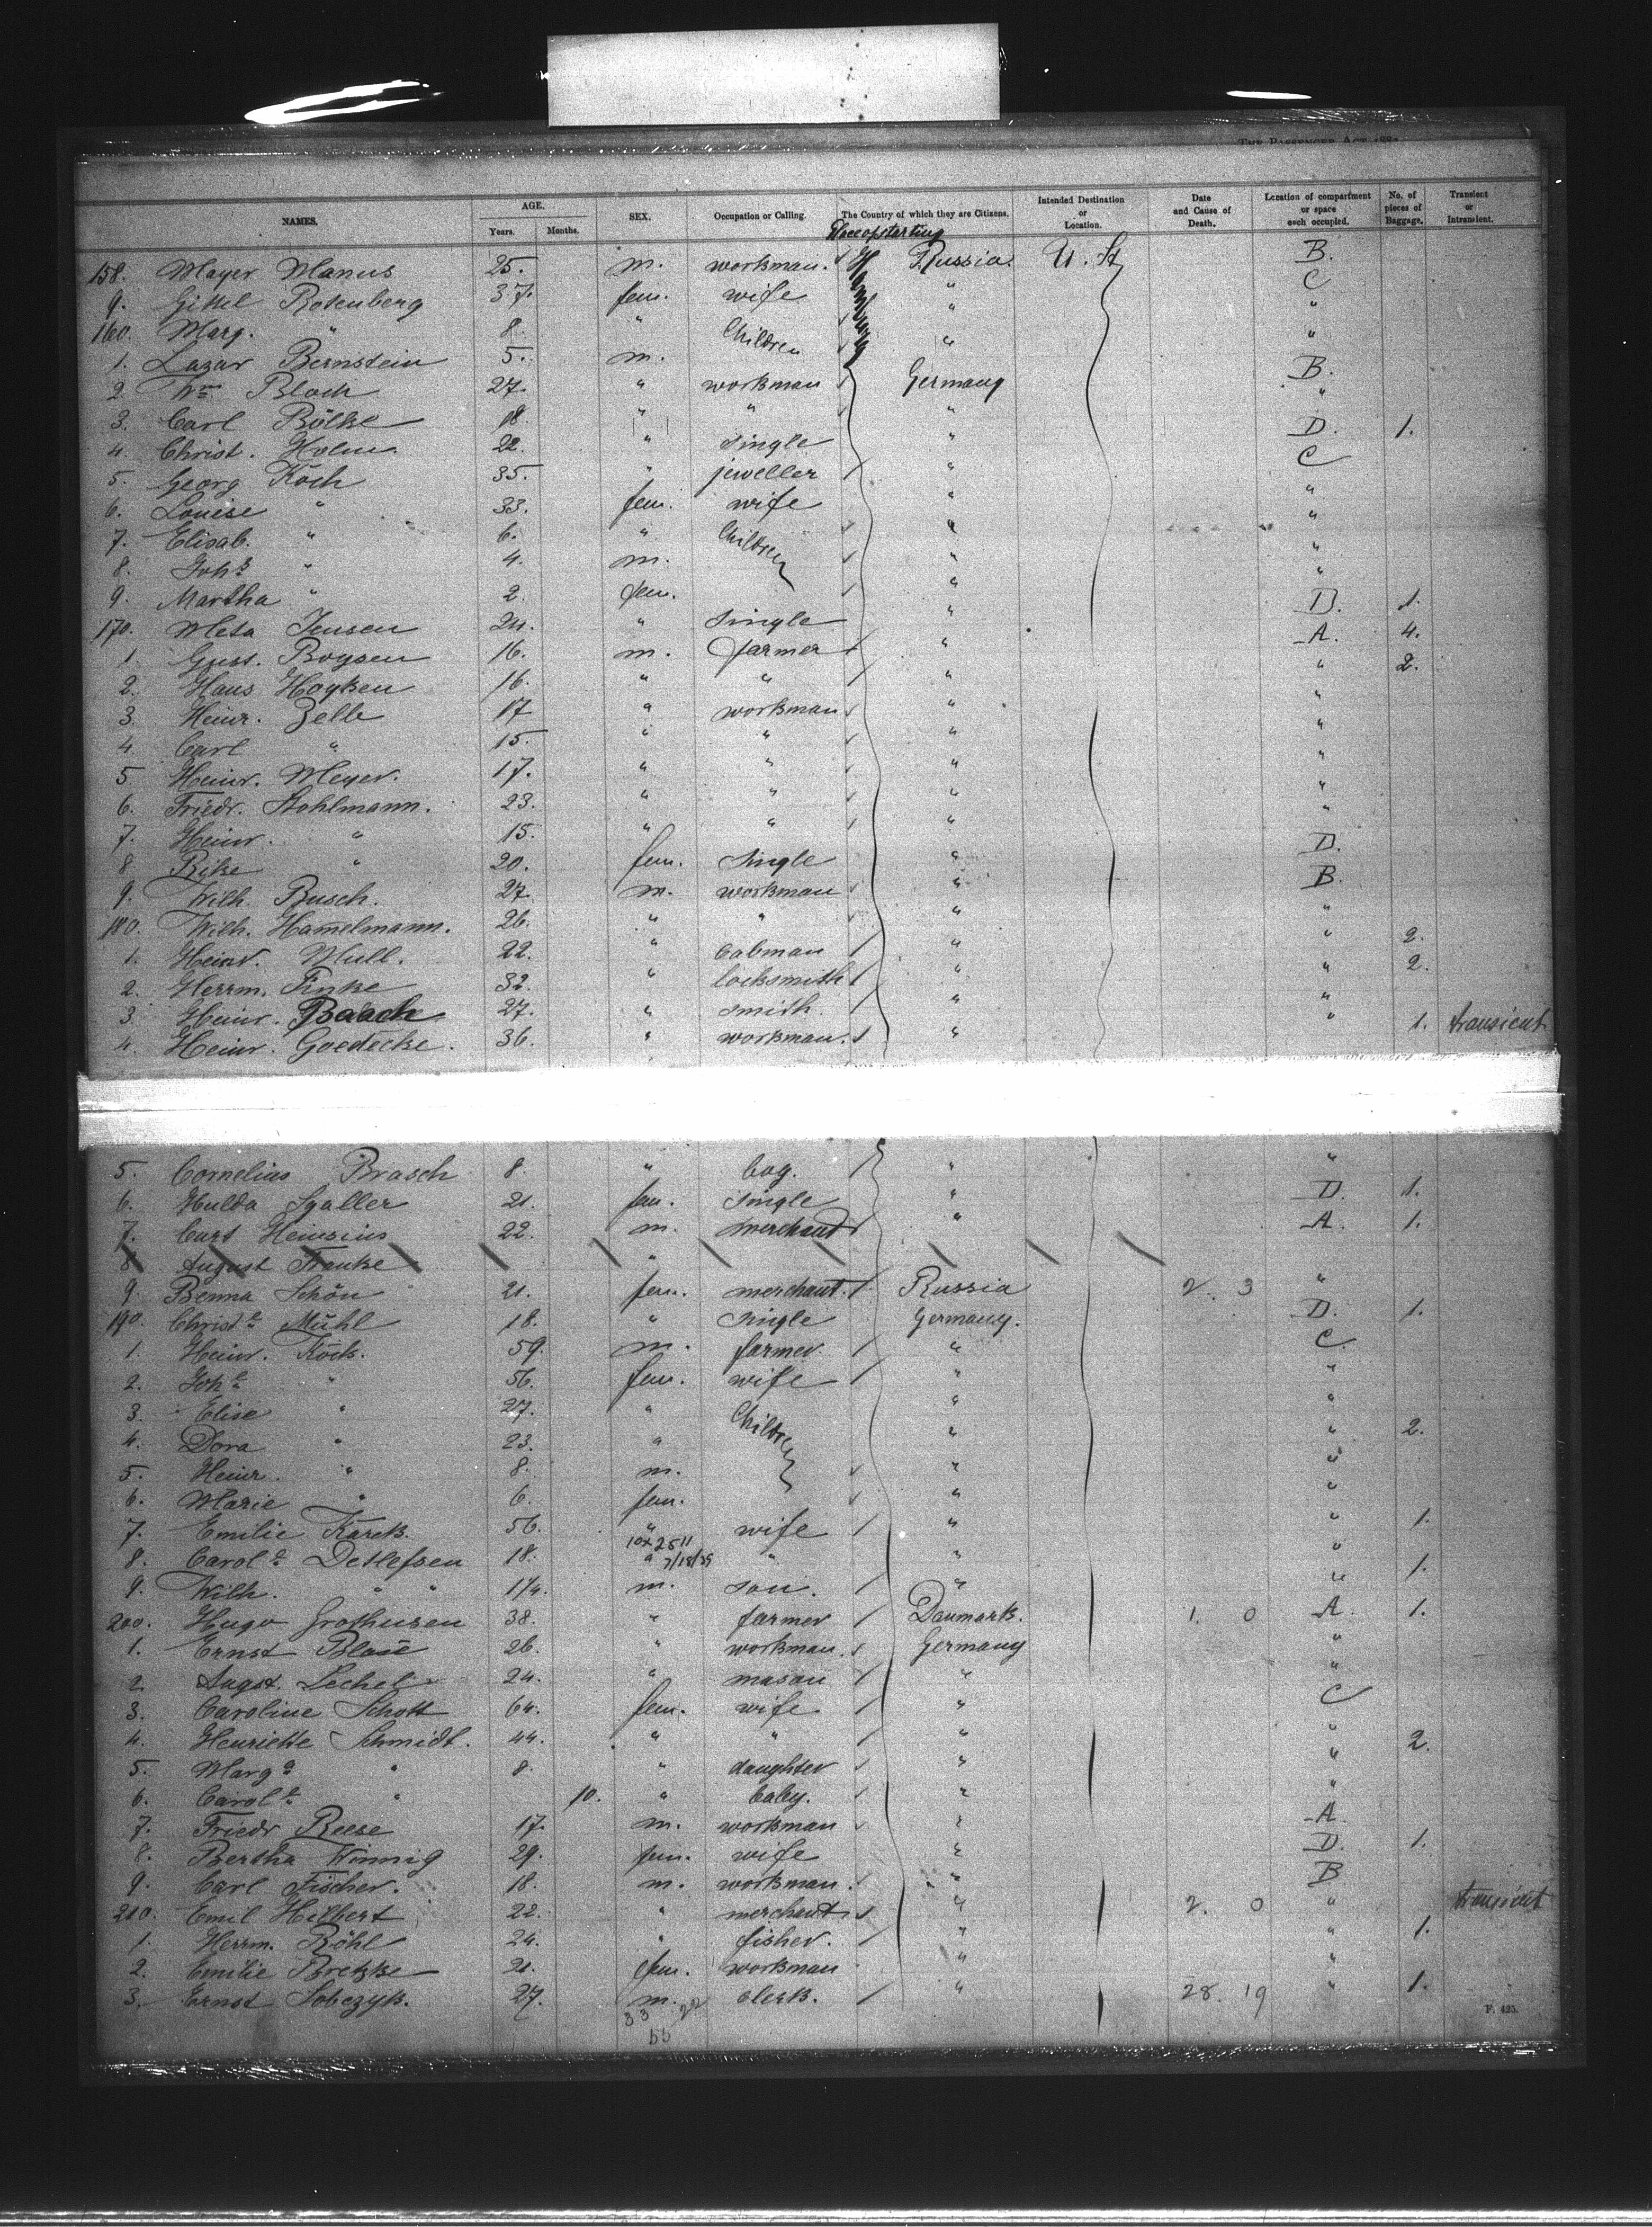 THE PASSENGER ACT 188
NAMES. AGE. Years. Months. SEX. Occupation or Calling. The Country of which they are Citizens. Intended Destination or Location. Date and Cause of Death. Location of compartment or space each occupied. No. of pieces of Baggage. Transient or Intransient.
Place of starting
158. Mayer Manus 25. m. workman. Hamburg Russia. U. St B.
9. Gittel Rotenberg 37. fem. wife " C
160. Marg. " 8. " Children " "
1. Lazar Bernstein 5. m. " "
2 Wm Bloch 27. " workman Germany B.
3. Carl Bölke 18. " " " "
4. Christ. Holm 22. " single " D. 1.
5. Georg Koch 35. " jeweller " C
6. Louise " 33. fem. wife " "
7. Elisab. " 6. " Children " "
8. Johs " 4. m. " "
9. Martha " 2. fem. " "
170. Meta Jensen 24. " single " D. 1.
1. Gust. Boysen 16. m. farmer " A. 4.
2. Hans Hoyken 16. " " " " 2.
3. Heinr. Zelle 17 " workman " "
4 Carl " 15. " " " "
5 Heinr. Meyer. 17. " " " "
6. Friedr. Stohlmann. 23. " " " "
7. Heinr. " 15. " " " "
8 Rike " 20. fem. single " D.
9. Wilh. Busch. 27. m. workman " B.
180. Wilh. Hamelmann. 26. " " " "
1. Heinr. Mull. 22. " cabman " " 2.
2. Herrm. Finke 32. " locksmith " " 2.
3 Heinr. Baach 27. " smith. " "
4. Heinr. Goedecke. 36. " workman. " " 1. transient
5. Cornelius Brasch 8. " boy. " "
6. Hulda Sgaller 21. fem. single " D. 1.
7. Curt Heinsius 22. m. merchant " A. 1.
8 August Franke "
9. Benna Schön 21. fem. merchant. Russia 2. 3 "
190. Christe Mühl 18. " single Germany. D. 1.
1. Heinr. Köck. 59. m. farmer. " C.
2. Johe " 56. fem. wife " "
3. Elise " 27. " Children " "
4. Dora " 23. " " " 2.
5. Heinr. " 8. m. " "
6. Marie " 6. fem. " "
7. Emilie Karck. 56. " wife " " 1.
10x2511
8. Carole Detlefsen 18. " 7/18/39 " " " 1.
9. Wilh. " " 1/4. m. son. " "
200. Hugo Grothusen 38. " farmer Danmark. 1. 0 A. 1.
1. Ernst Blase 26. " workman. Germany "
2. Augst. Lechel 24. " mason " "
3. Caroline Schott 64. fem. wife " C
4. Henriette Schmidt. 44. " " " " 2.
5. Marge " 8. " daughter " "
6. Carole " 10. " baby. " "
7. Friedr Reese 17. m. workman " A.
8. Bertha Winnig 29. fem. wife " D. 1.
9. Carl Fischer. 18. m. workman. " B
210. Emil Hilbert 22. " merchant " 2. 0 " transient
1. Herrm. Röhl 24. " fisher. " " 1.
2. Emilie Bretzke 21. fem. workman " "
3. Ernst Sobczyk. 27. m. clerk. " 28. 19 " 1.
33 22
55
F. 425.